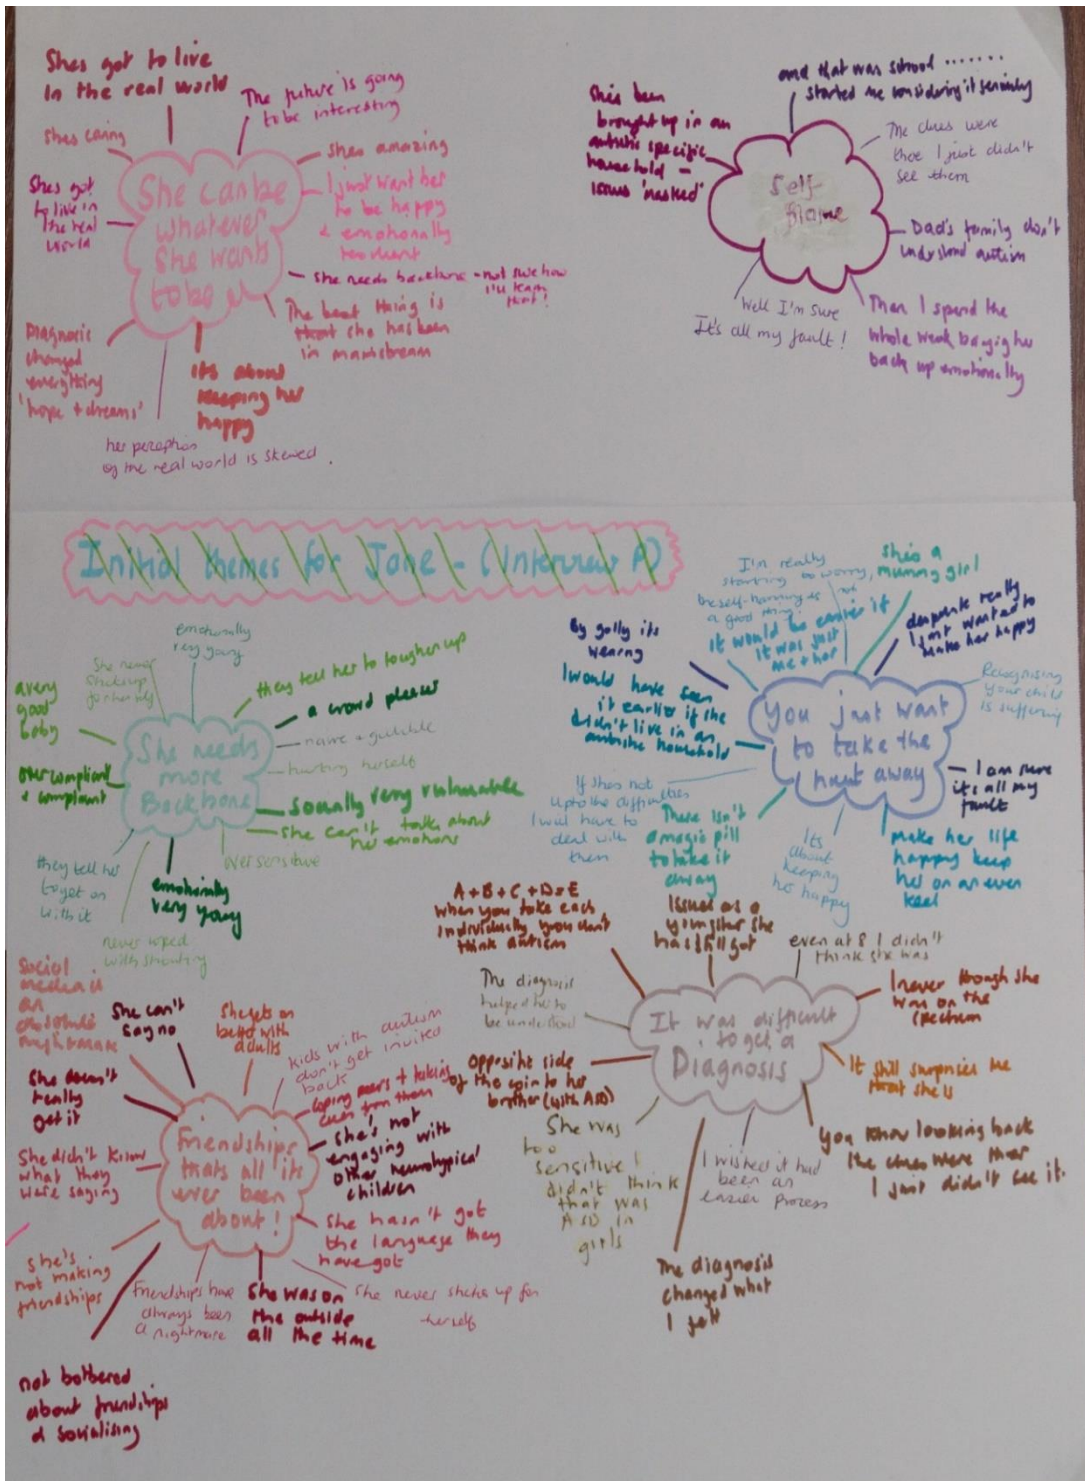 Shes got to live
In the real world
The future is going
to be interesting
Shes caring
Shes amazing
I just want her
to be happy
& emotionally
Shes got
to live in
the real
world
She can be
whatever
She wants
to be
She needs backbone - not sure how
I'll team
that!
The best thing is
that she has been
in mainstream
Diagnosis
changed
everything
'hope + dreams'
its about
keeping her
happy
her perception
of the real world is skewed.
and that was school .......
started me considering it seriously
She's been
brought up in an
autistic specific
household -
issues 'masked'
The clues were
there I just didn't
see them
Self
Blame
Dad's family don't
understand autism
Well I'm sure
It's all my fault!
Then I spend the
whole week
back up emotionally
Initial themes for Jane - (Interview A)
emotionally
very young
She never
sticks up
for herself
they tell her to toughen up
a very
good
baby
a crowd pleaser
She needs
more
Backbone
naive + gullible
hurting herself
over compliant
& compliant
Socially very vulnerable
She can't talk about
her emotions
over sensitive
they tell her
to get on
with it
emotionally
very young
never
with shouting
I'm really
starting to worry,
the self-harming is not
a good thing
shes a
mummy girl
it would be easier if
it was just
me + her
desperate really
I just wanted to
make her happy
By golly its
wearing
Recognising
your child
is suffering
I would have seen
it earlier if she
didn't live in an
autistic household
You just want
to take the
hurt away
I am sure
its all my
fault
If shes not
up to the difficulties
I will have to
deal with
them
There isn't
a magic pill
to take it
away
Its
about
keeping
her happy
make her life
happy keep
her on an even
keel
A + B + C + D = E
when you take each
individually you don't
think autism
Issues as a
youngster she
has still got
even at 8 I didn't
think she was
The diagnosis
helped her to
be understood
I never though she
was on the
spectrum
It was difficult
to get a
Diagnosis
opposite side
of the coin to her
brother (with ASD)
It still surprises me
that she is
She was
too
sensitive I
didn't think
that was
ASD in
girls
I wished it had
been an
easier process
You know looking back
the clues were ther
I just didn't see it.
The diagnosis
changed what
I felt
Social
media is
an
absolute
nightmare
She can't
say no
She gets on
better with
adults
kids with autism
don't get invited
back
She doesn't
really
get it
coping peers + taking
cues from them
Friendships
thats all its
ever been
about!
She's not
engaging with
other neurotypical
children
She didn't know
what they
were saying
She hasn't got
the language they
have got
She's
not making
friendships
Friendships have
always been
a nightmare
She was on
the outside
all the time
She never sticks up for
herself
not bothered
about friendships
& socialising